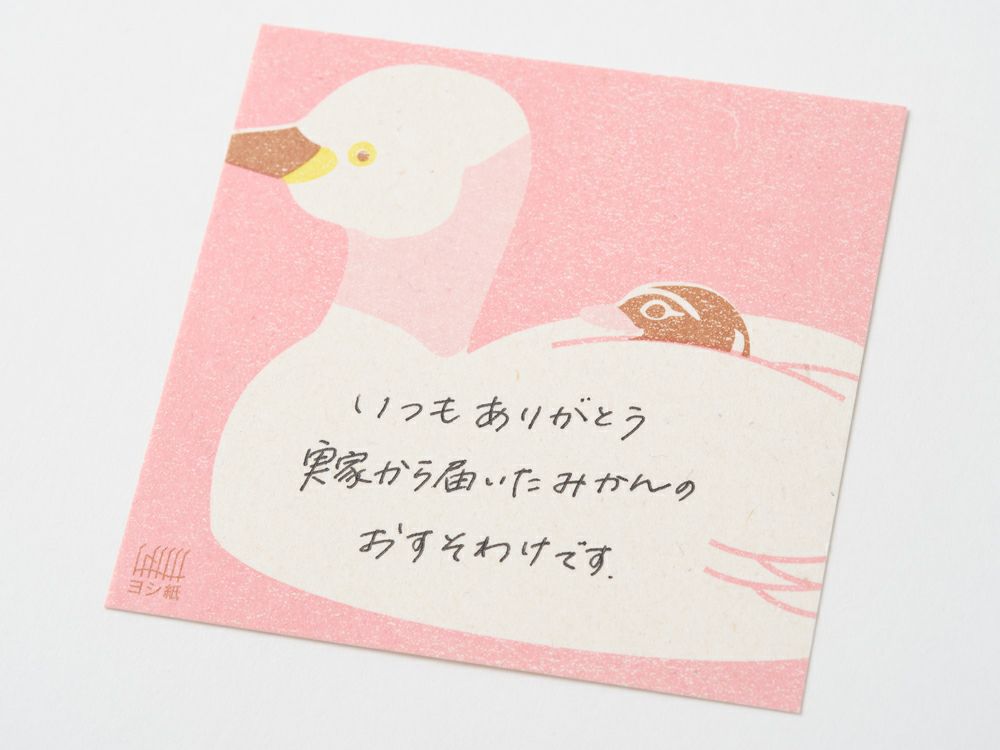 いつもありがとう
実家から届いたみかんの
おすそわけです.
ヨシ紙